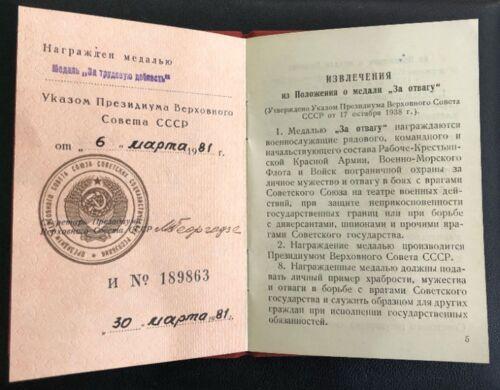 Награжден медалью
Медаль „За трудовую доблесть"
Указом Президиума Верховного
Совета СССР
от „ 6 „ марта 1981 г.
Секретарь Президиума
Верховного Совета СССР
И № 189863
„ 30 „ марта 1981 г.
ИЗВЛЕЧЕНИЯ
из Положения о медали „За отвагу"
(Утверждено Указом Президиума Верховного Совета
СССР от 17 октября 1938 г.).
1. Медалью „За отвагу" награждаются
военнослужащие рядового, командного и
начальствующего состава Рабоче-Крестьян-
ской Красной Армии, Военно-Морского
Флота и Войск пограничной охраны за
личное мужество и отвагу в боях с врагами
Советского Союза на театре военных дей-
ствий, при защите неприкосновенности
государственных границ или при борьбе
с диверсантами, шпионами и прочими вра-
гами Советского государства.
2. Награждение медалью производится
Президиумом Верховного Совета СССР.
8. Награжденные медалью должны пода-
вать личный пример храбрости, мужества
и отваги в борьбе с врагами Советского
государства и служить образцом для других
граждан при исполнении государственных
обязанностей.
5